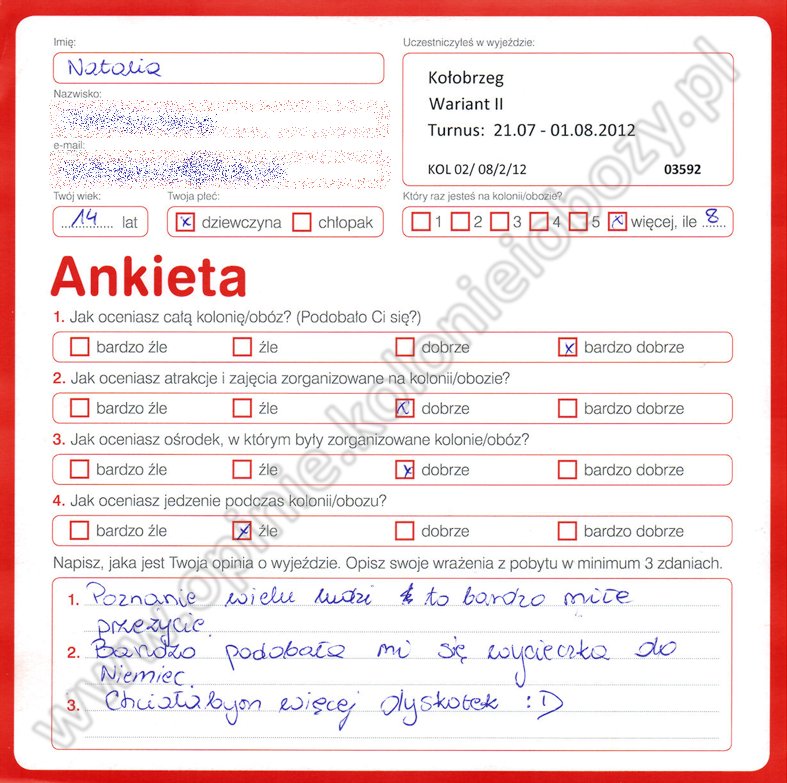 Imię:
Natalia
Nazwisko:
e-mail:
Twój wiek:
14 lat
Twoja płeć:
x dziewczyna chłopak
Uczestniczyłeś w wyjeździe:
Kołobrzeg
Wariant II
Turnus: 21.07 - 01.08.2012
KOL 02/ 08/2/12 03592
Który raz jesteś na kolonii/obozie?
1 2 3 4 5 x więcej, ile 8
Ankieta
1. Jak oceniasz całą kolonię/obóz? (Podobało Ci się?)
bardzo źle źle dobrze x bardzo dobrze
2. Jak oceniasz atrakcje i zajęcia zorganizowane na kolonii/obozie?
bardzo źle źle x dobrze bardzo dobrze
3. Jak oceniasz ośrodek, w którym były zorganizowane kolonie/obóz?
bardzo źle źle x dobrze bardzo dobrze
4. Jak oceniasz jedzenie podczas kolonii/obozu?
bardzo źle x źle dobrze bardzo dobrze
Napisz, jaka jest Twoja opinia o wyjeździe. Opisz swoje wrażenia z pobytu w minimum 3 zdaniach.
1. Poznanie wielu ludzi to bardzo miłe
przeżycie.
2. Bardzo podobała mi się wycieczka do
Niemiec.
3. Chciałabym więcej dyskotek :D
www.opinie.kolonieiobozy.pl